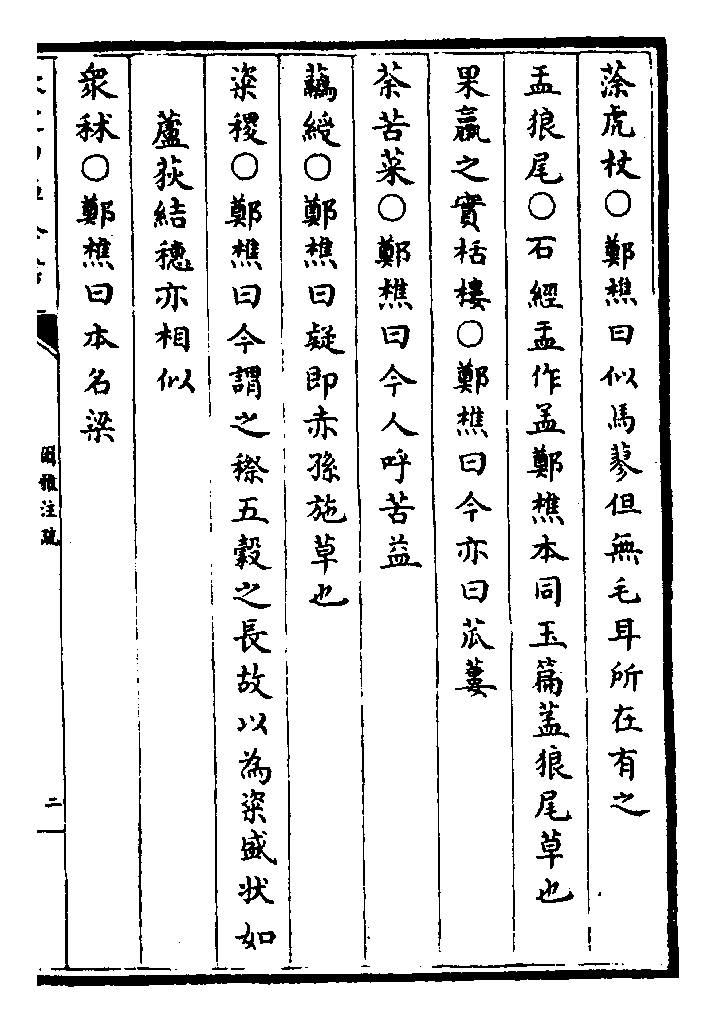 蒤虎杖○鄭樵曰似馬蓼但無毛耳所在有之
孟狼尾○石經孟作孟鄭樵本同玉篇蓋狼尾草也
果臝之實栝樓○鄭樵曰今亦曰苽蔞
荼苦菜○鄭樵曰今人呼苦益
虉綬○鄭樵曰疑即赤孫施草也
粢稷○鄭樵曰今謂之穄五穀之長故以為粢盛狀如
蘆荻結穗亦相似
衆秫○鄭樵曰本名梁
爾雅注疏
二